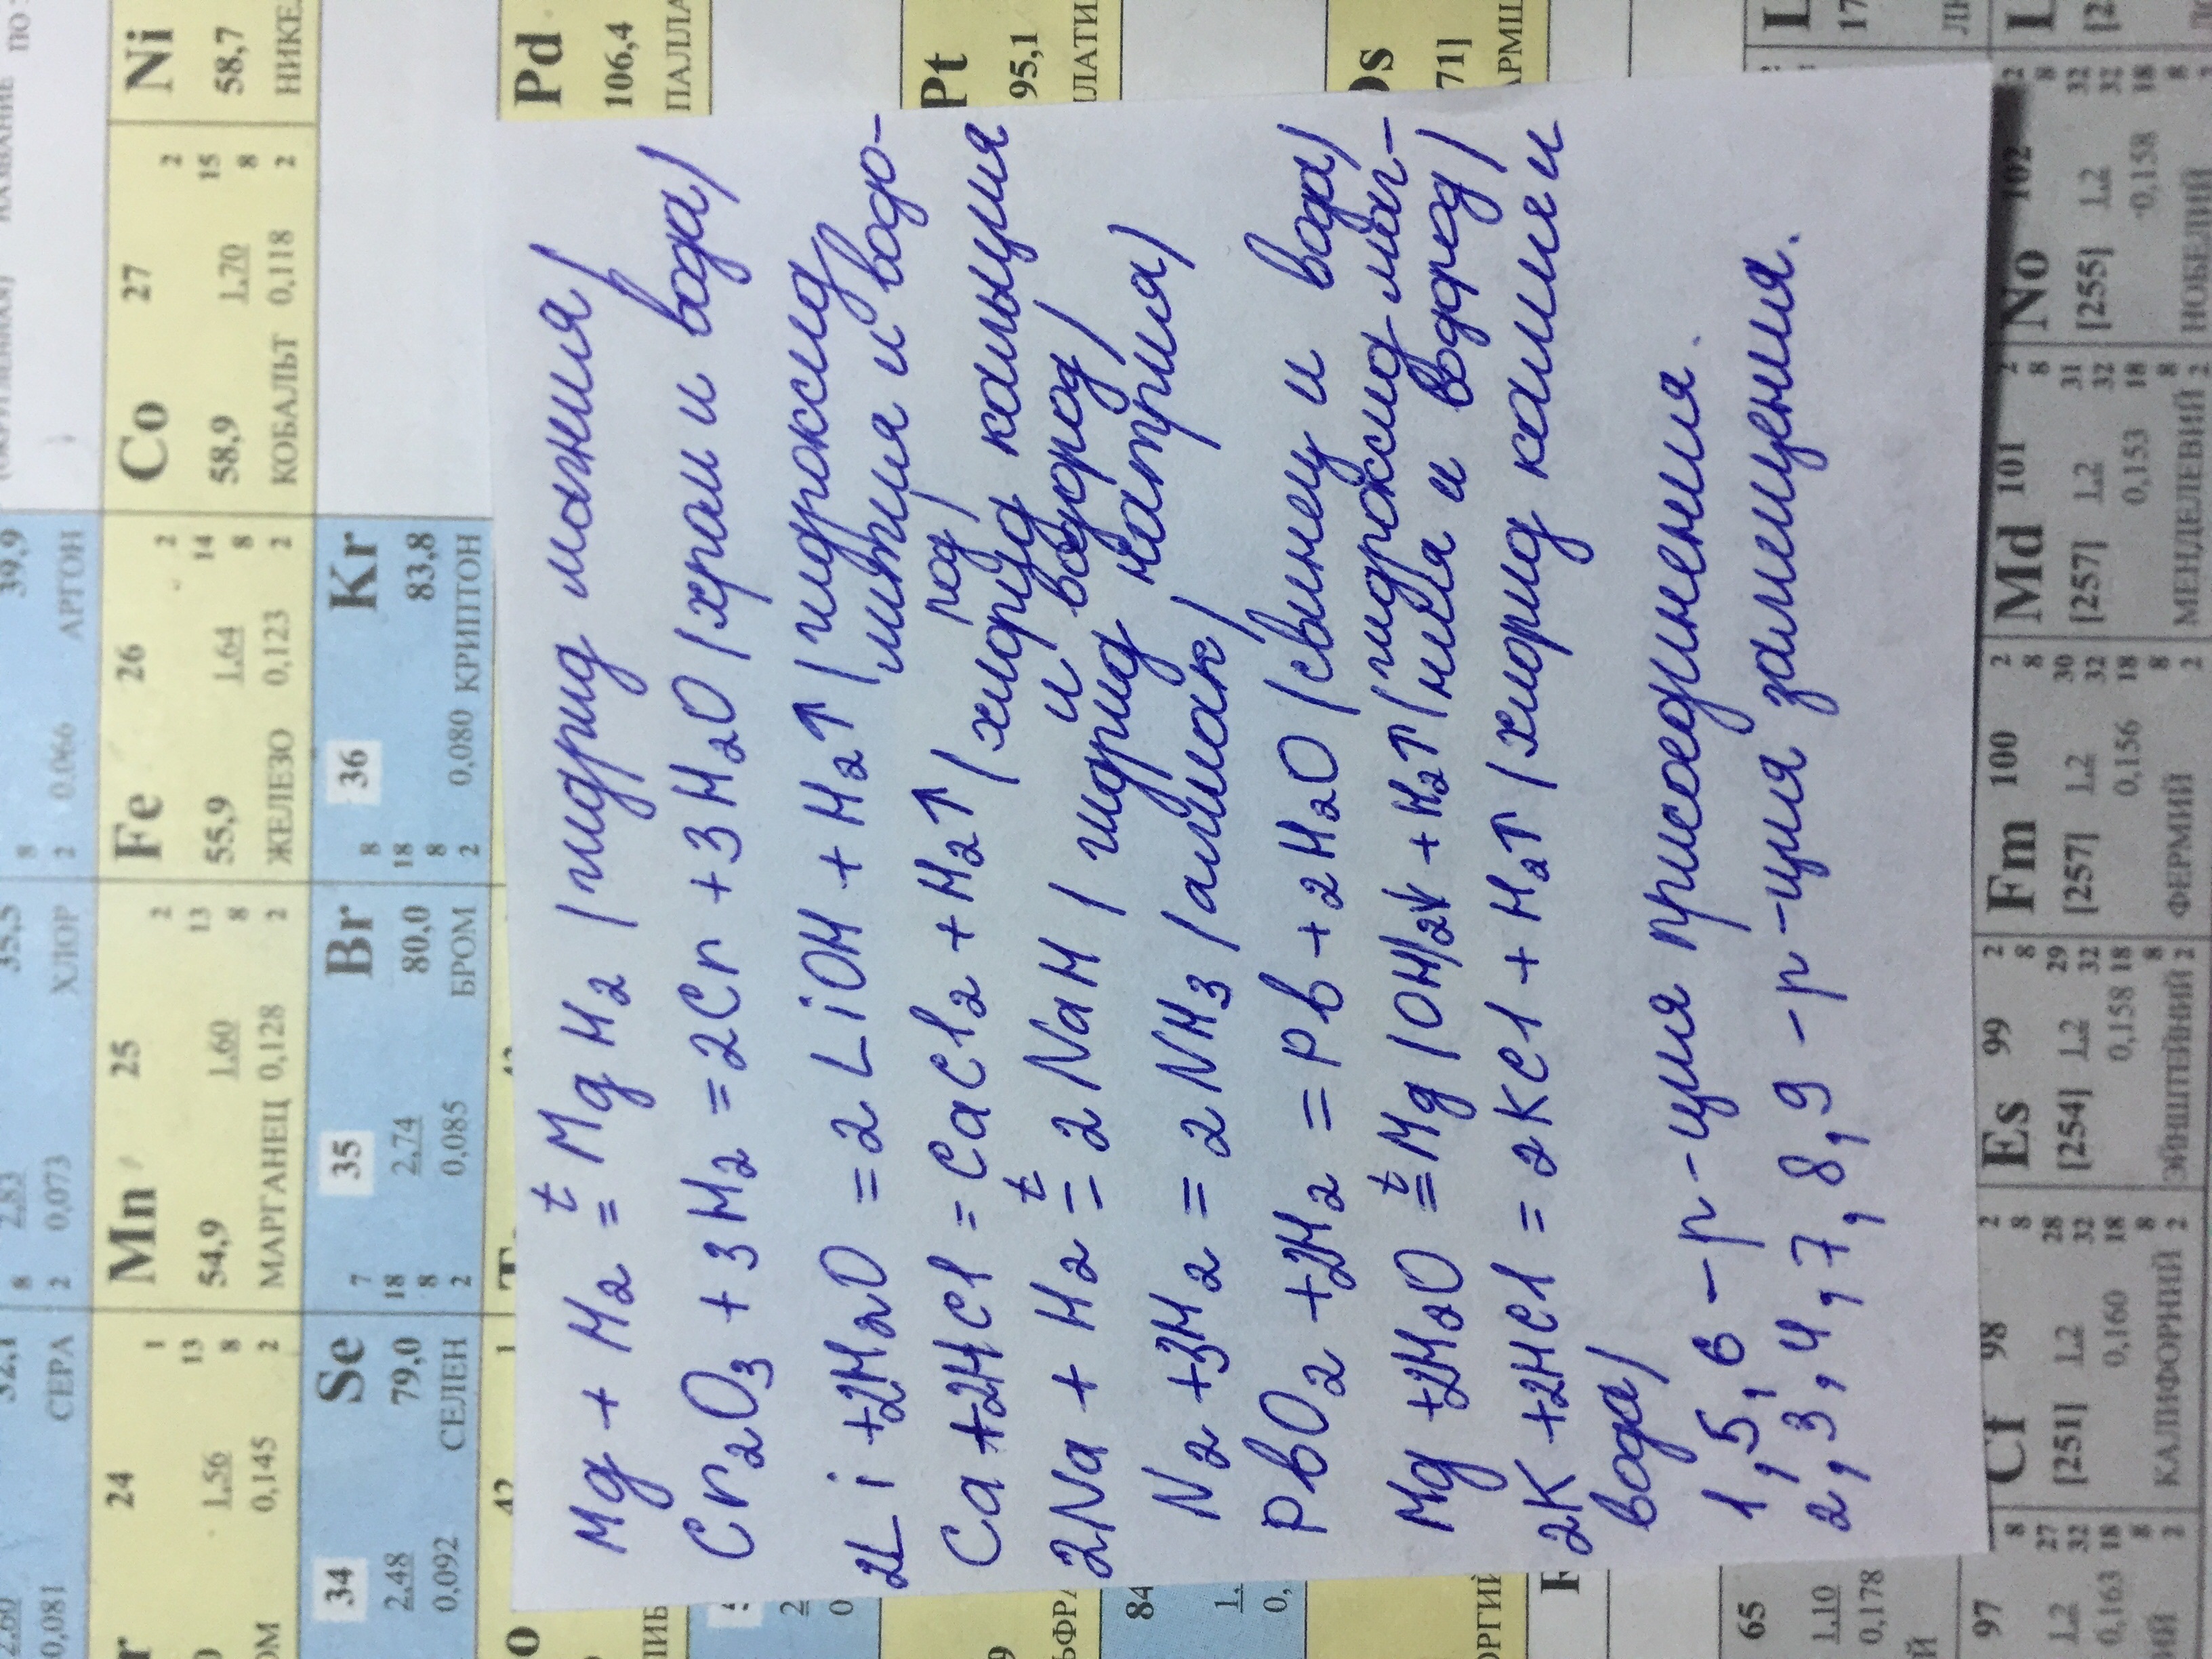 Mg + H₂ =ᵗ MgH₂ /гидрид магния/
Cr₂O₃ + 3H₂ = 2Cr + 3H₂O /хром и вода/
2Li + 2H₂O = 2LiOH + H₂↑ /гидроксид
лития и водо-
род/
Ca + 2HCl = CaCl₂ + H₂↑ /хлорид кальция
и водород/
2Na + H₂ =ᵗ 2NaH /гидрид натрия/
N₂ + 3H₂ = 2NH₃ /аммиак/
PbO₂ + 2H₂ = Pb + 2H₂O /свинец и вода/
Mg + 2H₂O =ᵗ Mg/OH/₂↓ + H₂↑ /гидроксид маг-
ния и водород/
2K + 2HCl = 2KCl + H₂↑ /хлорид калия и
вода/
1, 5, 6 - р-ция присоединения.
2, 3, 4, 7, 8, 9 - р-ция замещения.
24
1,56
0,145
1
13
8
2
Mn
25
54,9
1,60
МАРГАНЕЦ 0,128
2
13
8
2
Fe
26
55,9
1,64
ЖЕЛЕЗО 0,123
2
14
8
2
Co
27
58,9
1,70
КОБАЛЬТ 0,118
2
15
8
2
Ni
58,7
НИКЕ
34
Se
2,48
79,0
0,092
СЕЛЕН
35
Br
2,74
80,0
0,085
БРОМ
36
Kr
83,8
0,080 КРИПТОН
СЕРА
2,83
0,073
35,5
ХЛОР
0,066
39,9
АРГОН
0,081
Pd
106,4
ПАЛЛА
Pt
95,1
ПЛАТИ
71]
АРМШ
42
84
65
1,10
0,178
97
1,2
0,163
Cf
98
[251]
1,2
0,160
КАЛИФОРНИЙ
Es
99
[254]
1,2
0,158
ЭЙНШТЕЙНИЙ
Fm
100
[257]
1,2
0,156
ФЕРМИЙ
Md
101
[257]
1,2
0,153
МЕНДЕЛЕВИЙ
No
102
[255]
1,2
0,158
НОБЕЛИЙ